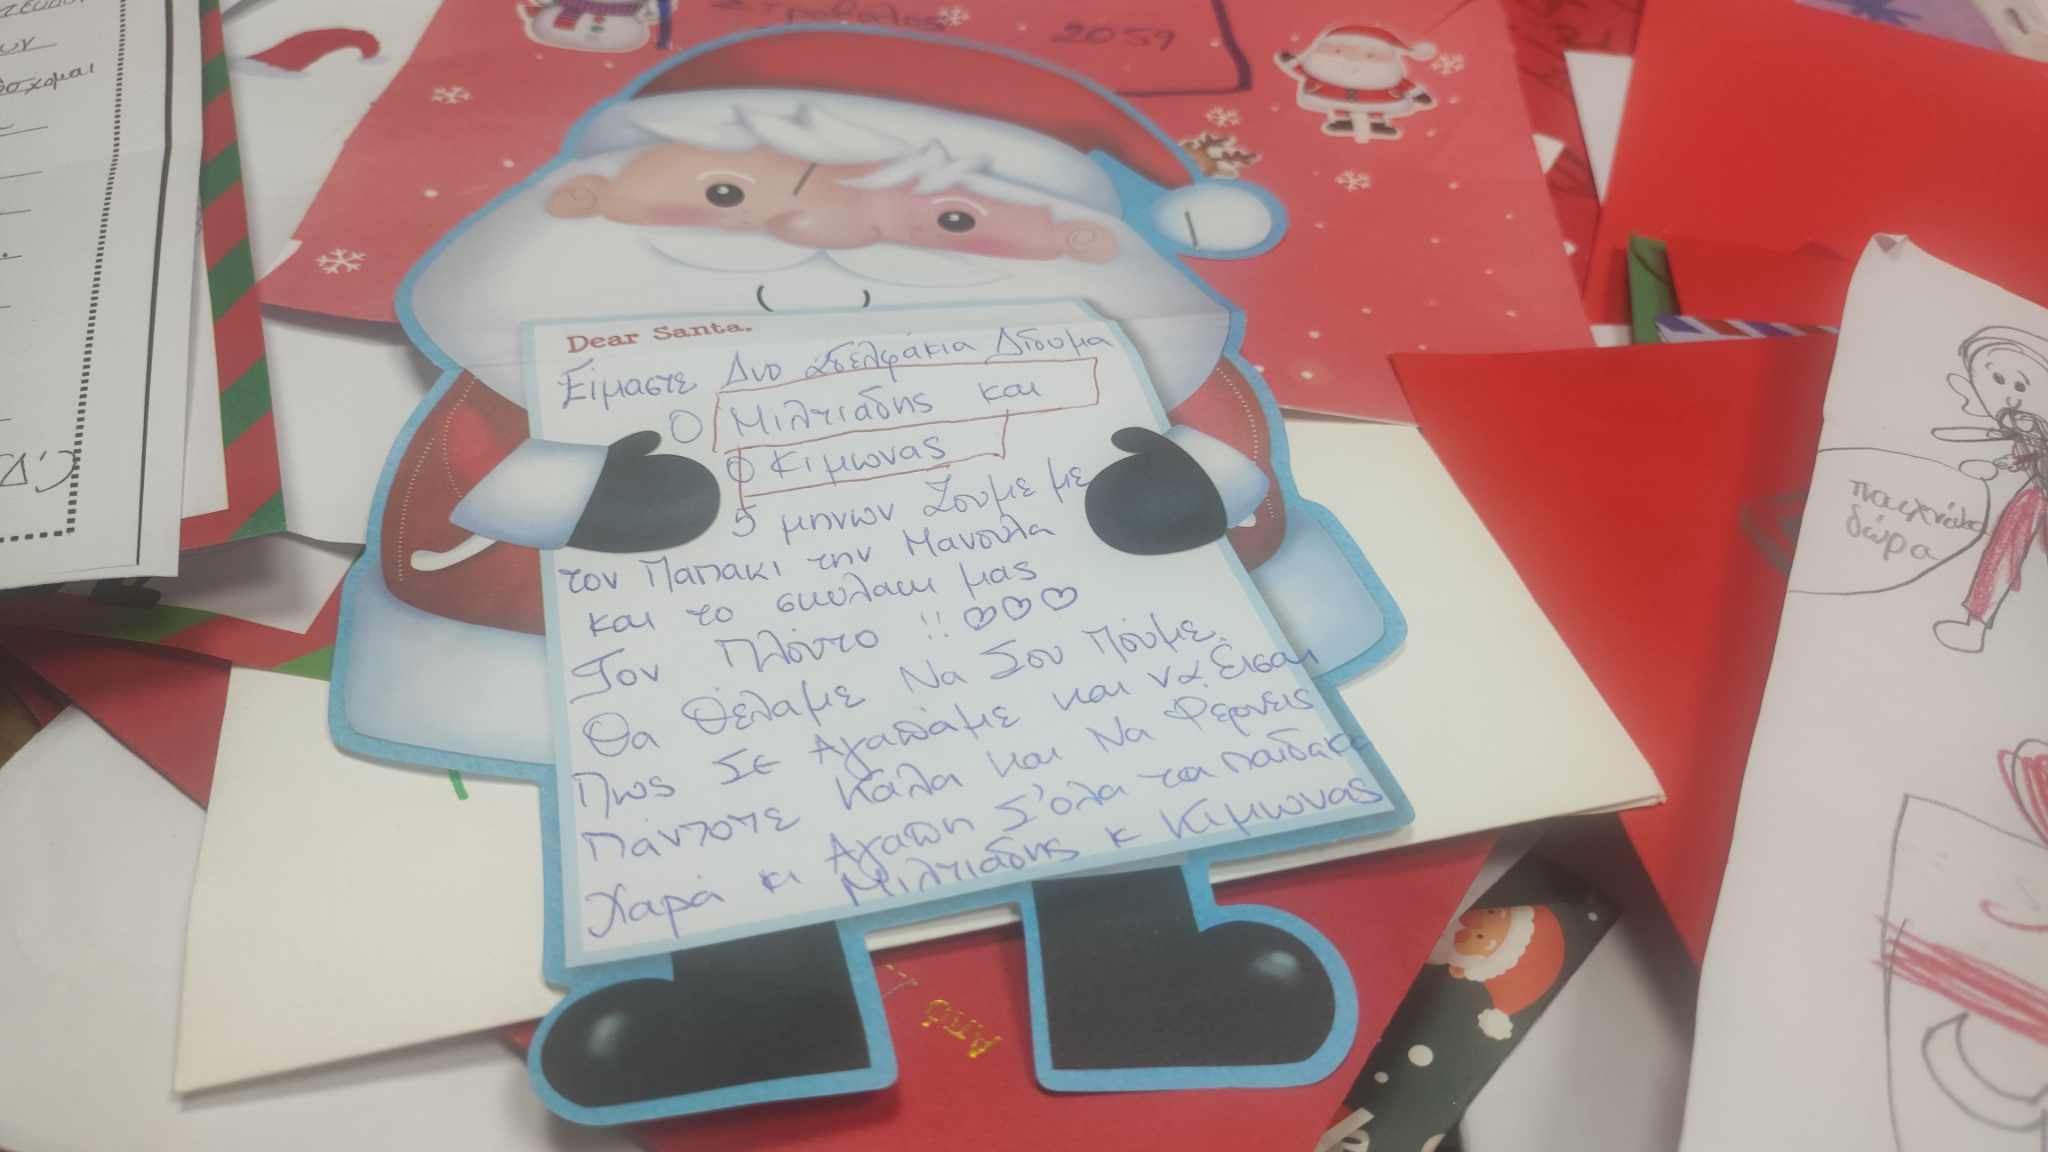 Στρόβολος
2059
Dear Santa.
Είμαστε Δυο αδελφάκια Δίδυμα
Ο Μιλτιαδης και
Ο Κιμωνας
5 μηνων Ζουμε με
τον Παπακι την Μανούλα
και το σκυλακι μας
Τον Πλούτο !! ♡♡♡
Θα Θέλαμε Να Σου Πούμε
Πως Σε Αγαπάμε και να Εισαι
Πάντοτε Καλα και Να Φερνεις
Χαρά κι Αγαπη Σ'ολα τα παιδακια
Μιλτιαδης κ Κιμωνας
δώρα
Από